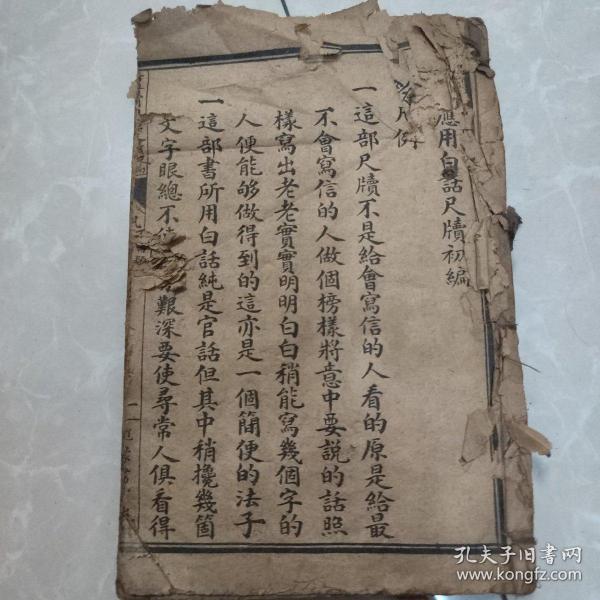 應用白話尺牘初編
凡例
一這部尺牘不是給會寫信的人看的原是給最
不會寫信的人做個榜樣將意中要說的話照
樣寫出老老實實明明白白稍能寫幾個字的
人便能够做得到的這亦是一個簡便的法子
一這部書所用白話純是官話但其中稍攙幾箇
文字眼總不使艱深要使尋常人俱看得
孔夫子旧书网
www.kongfz.com